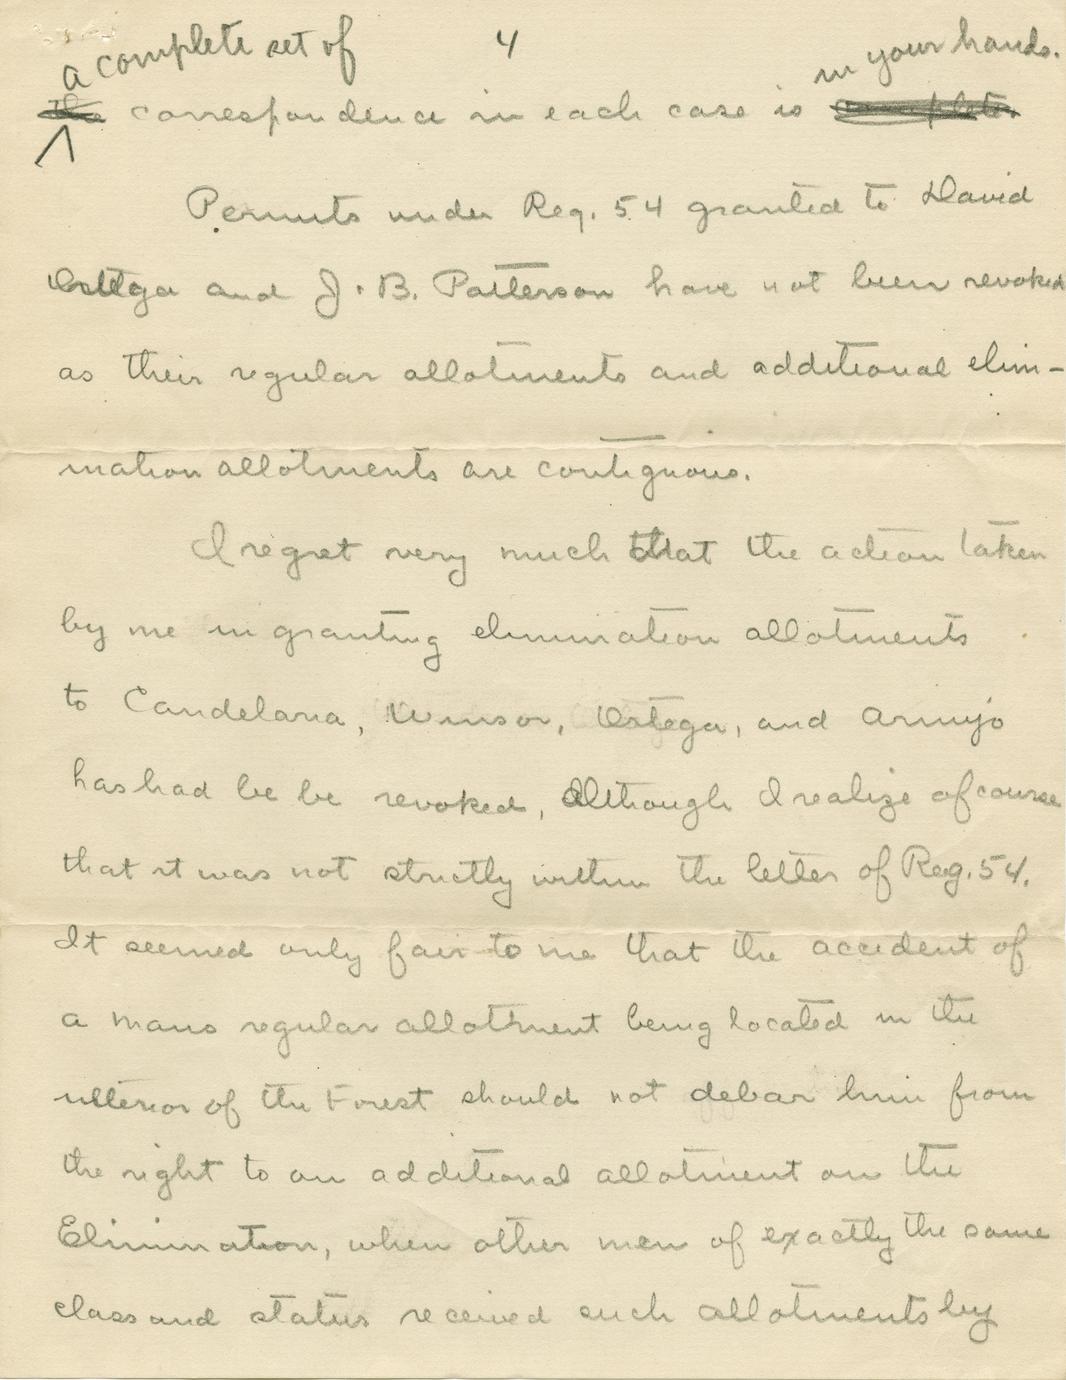 4
a complete set of in your hands.
the correspondence in each case is complete.
Permits under Reg. 54 granted to David
Ostega and J. B. Patterson have not been revoked
as their regular allotments and additional elim-
ination allotments are contiguous.
I regret very much that the action taken
by me in granting elimination allotments
to Candelaria, Winsor, Ostega, and Armijo
has had be be revoked, although I realize of course
that it was not strictly within the letter of Reg. 54.
It seemed only fair to me that the accident of
a mans regular allotment being located in the
interior of the Forest should not debar him from
the right to an additional allotment on the
Elimination, when other men of exactly the same
class and status received such allotments by